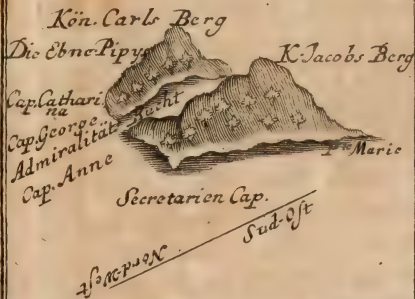 Kön. Carls Berg
Die Ebne Pipys
K. Jacobs Berg
Cap. Cathari
na
Cap. George
Admiralität Bucht
Cap. Anne
Marie
Secretarien Cap.
Nord-West
Sud-Ost